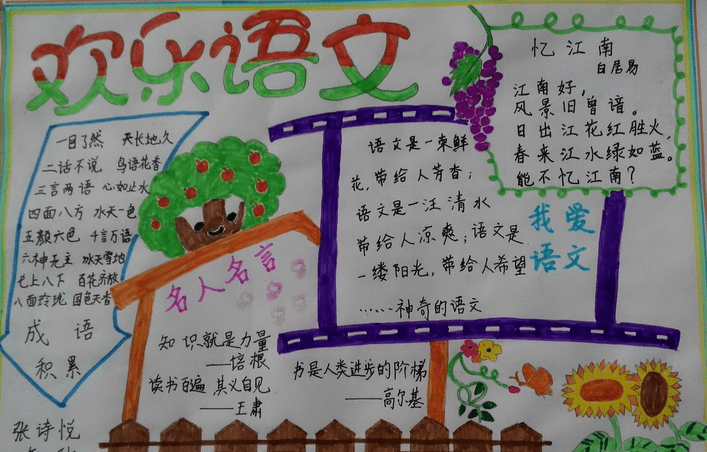 欢乐语文
忆江南
白居易
江南好，
风景旧曾谙。
日出江花红胜火，
春来江水绿如蓝。
能不忆江南？
一目了然 天长地久
二话不说 鸟语花香
三言两语 心如止水
四面八方 水天一色
五颜六色 千言万语
六神无主 冰天雪地
七上八下 百花齐放
八面玲珑 国色天香
成语
积累
语文是一束鲜
花，带给人芳香；
语文是一汪清水
带给人凉爽；语文是
一缕阳光，带给人希望
……神奇的语文
我爱
语文
名人名言
知识就是力量
——培根
读书百遍 其义自见
——王肃
书是人类进步的阶梯
——高尔基
张诗悦